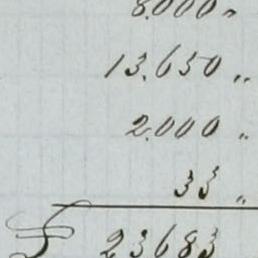 8.000 "
13.650 "
2.000 "
33 "
F 23683